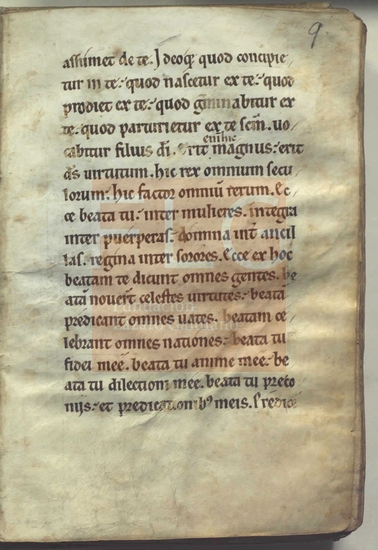 9
assumet de te. Ideoq; quod concipie
tur in te: quod nascetur ex te: quod
prodiet ex te: quod gminabitur ex
te: quod parturietur ex te scm. uo
cabitur filius di. Erit enim hic magnus: erit
ds uirtutum. hic rex omnium secu
lorum: hic factor omniū rerum. Ec
ce beata tu: inter mulieres. integra
inter puerperas: domina int ancil
las. regina inter sorores. Ecce ex hoc
beatam te dicunt omnes gentes. be
atā nouert celestes uirtutes: beatā
predicant omnes uates. beatam ce
lebrant omnes nationes: beata tu
fidei mee. beata tu anime mee: be
ata tu dilectioni mee. beata tu preco
niis: et predicationib; meis. Predica